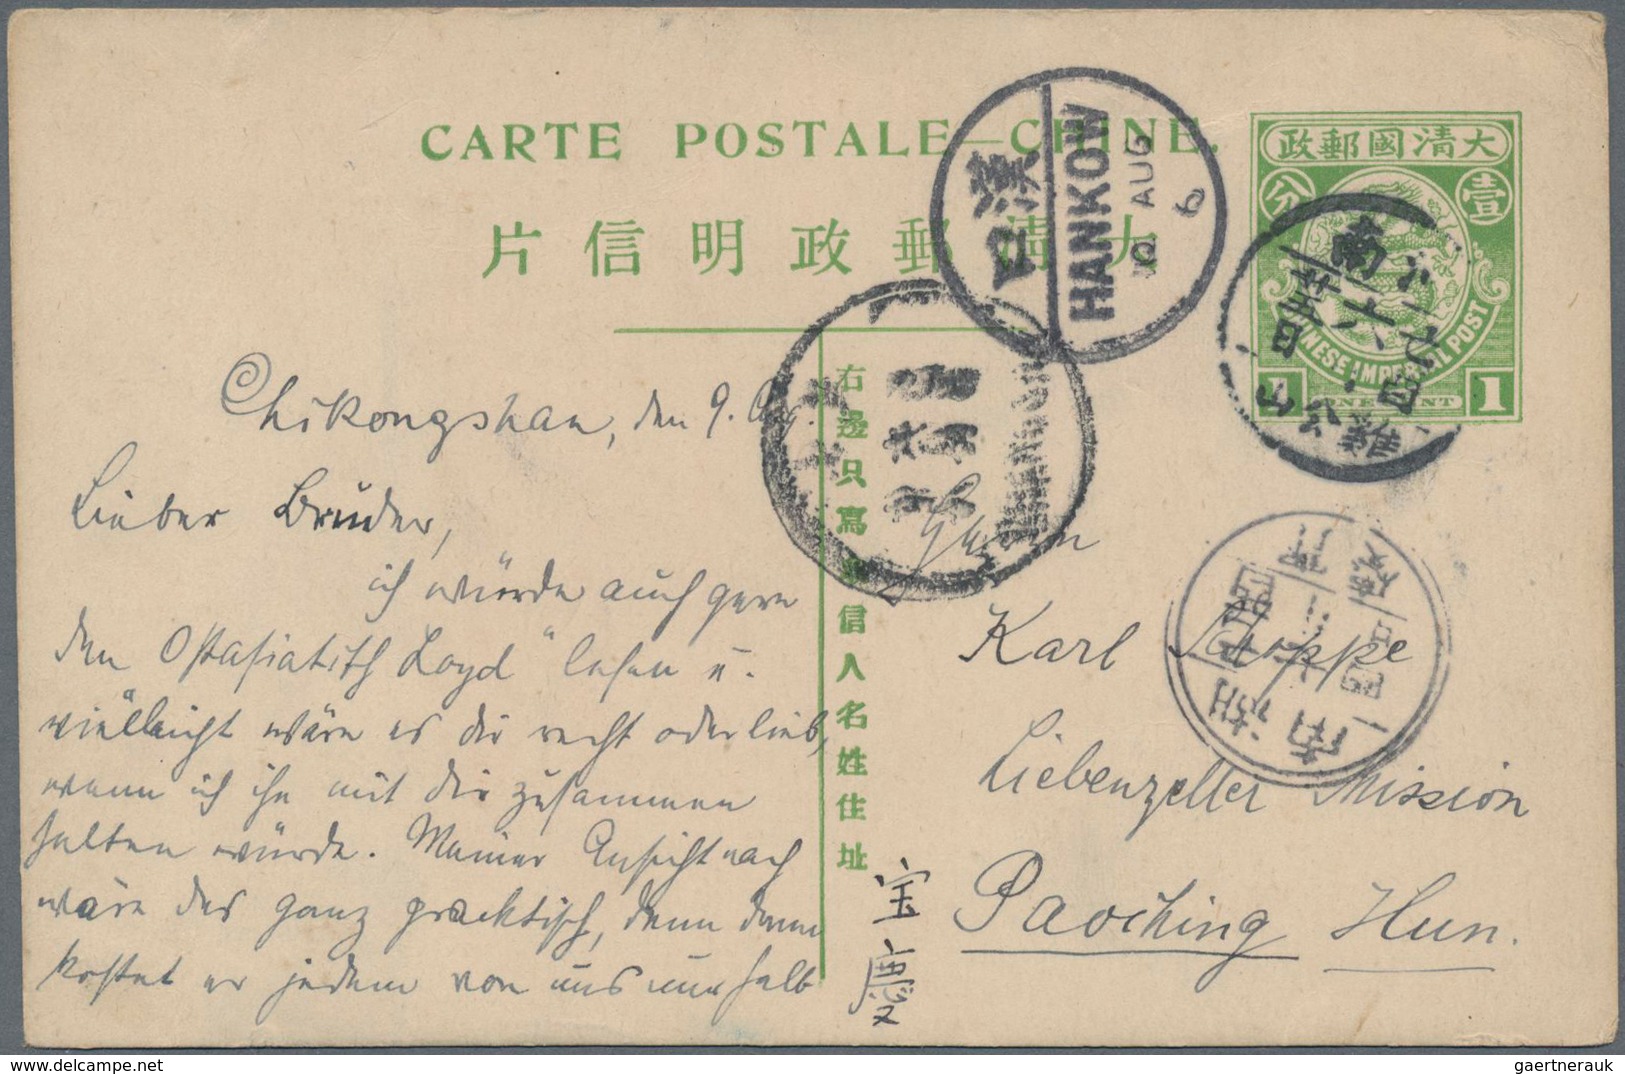 CARTE POSTALE—CHINE.
片信明政郵清大
政郵國清大
分 壹
CHINESE IMPERIAL POST
1 ONE CENT 1
口漢
HANKOW
10 AUG
南
河
六
日
雞公山
湖南
右邊只寫收信人名姓住址
Chikongshan, den 9. Aug.
Lieber Bruder,
ich würde auch gern
den Ostasiatisch Loyd" lesen u.
vielleicht wäre es dir recht oder lieb,
wenn ich ihn mit dir zusammen
halten würde. Meiner Ansicht nach
wäre das ganz practisch, denn dann
kostet er jedem von uns nur halb
Herrn
Karl
Liebenzeller Mission
Paoching Hun.
宝慶
gaertnerauk@delcampe